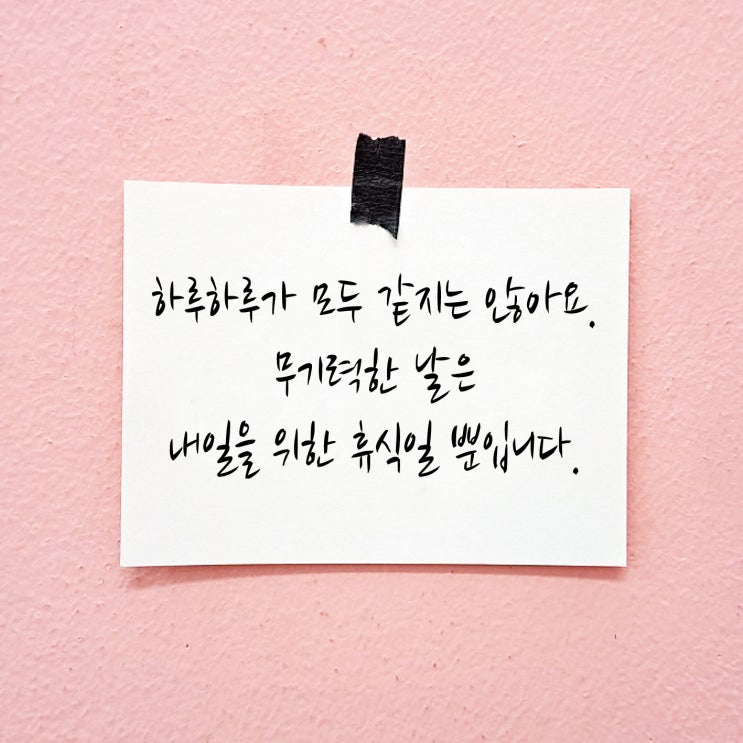 하루하루가 모두 같지는 않아요.
무기력한 날은
내일을 위한 휴식일 뿐입니다.